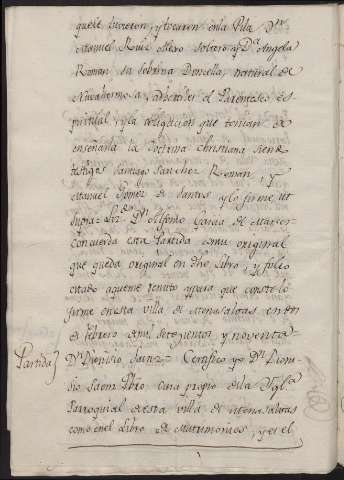 que le tuvieron, y tocaren en la Pila Dn
Manuel Ruiz soltero y Dª Angela
Roman su sobrina Doncella, natural de
Navahermosa, advertiles el Parentesco es-
piritual, y la obligacion que tenian de
enseñarla la Doctrina Christiana siendo
testigos Santiago Sanchez Roman, y
Manuel Gomez de Santos y lo firme ut
supra = Lizdo Dn Alfonso Garcia de Marcos =
concuerda esta Partida con su original
que queda original en dho Libro, y folio
citado aqueme remito y para que conste lo
firme en esta villa de Menasalvas en
de febrero de mil setecientos y noventa =
Dn Dionisio Sainz = Certifico yo Dn Dioni-
Partida} sio Saenz Pbro Cura propio de la Yglª
Parroquial de esta villa de Menasalvas
como en el Libro de Matrimonios, y es el